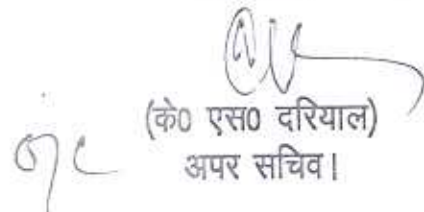 (के0 एस0 दरियाल)
अपर सचिव।